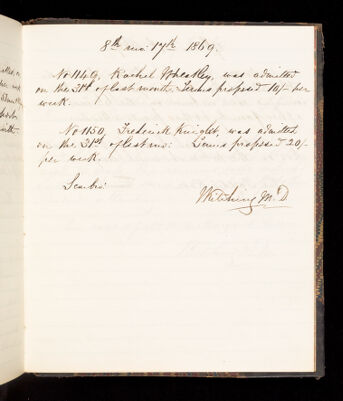 8th mo: 17th 1869.
No 1149, Rachel Wheatley, was admitted
on the 31st of last month. Terms proposed 10/- per
week.
No 1150, Frederick Knight, was admitted
on the 31st of last mo: Terms proposed 20/-
per week.
Kitching M.D.